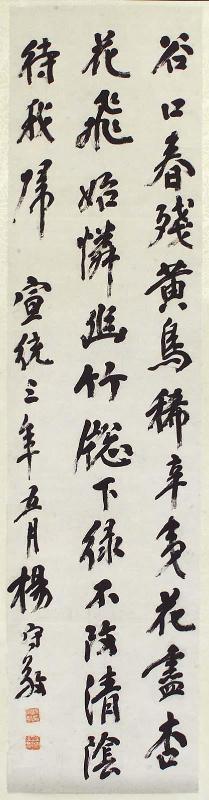 谷口春殘黃鳥稀辛夷花盡杏
花飛始憐幽竹窓下綠不改清陰
待我歸 宣統三年五月楊守敬